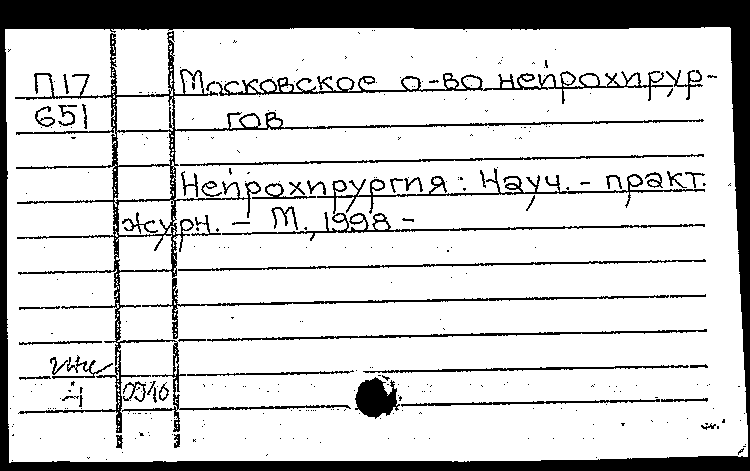 П17 Московское о-во нейрохирур-
651 гов
Нейрохирургия: Науч. - практ.
журн. - М., 1998 -